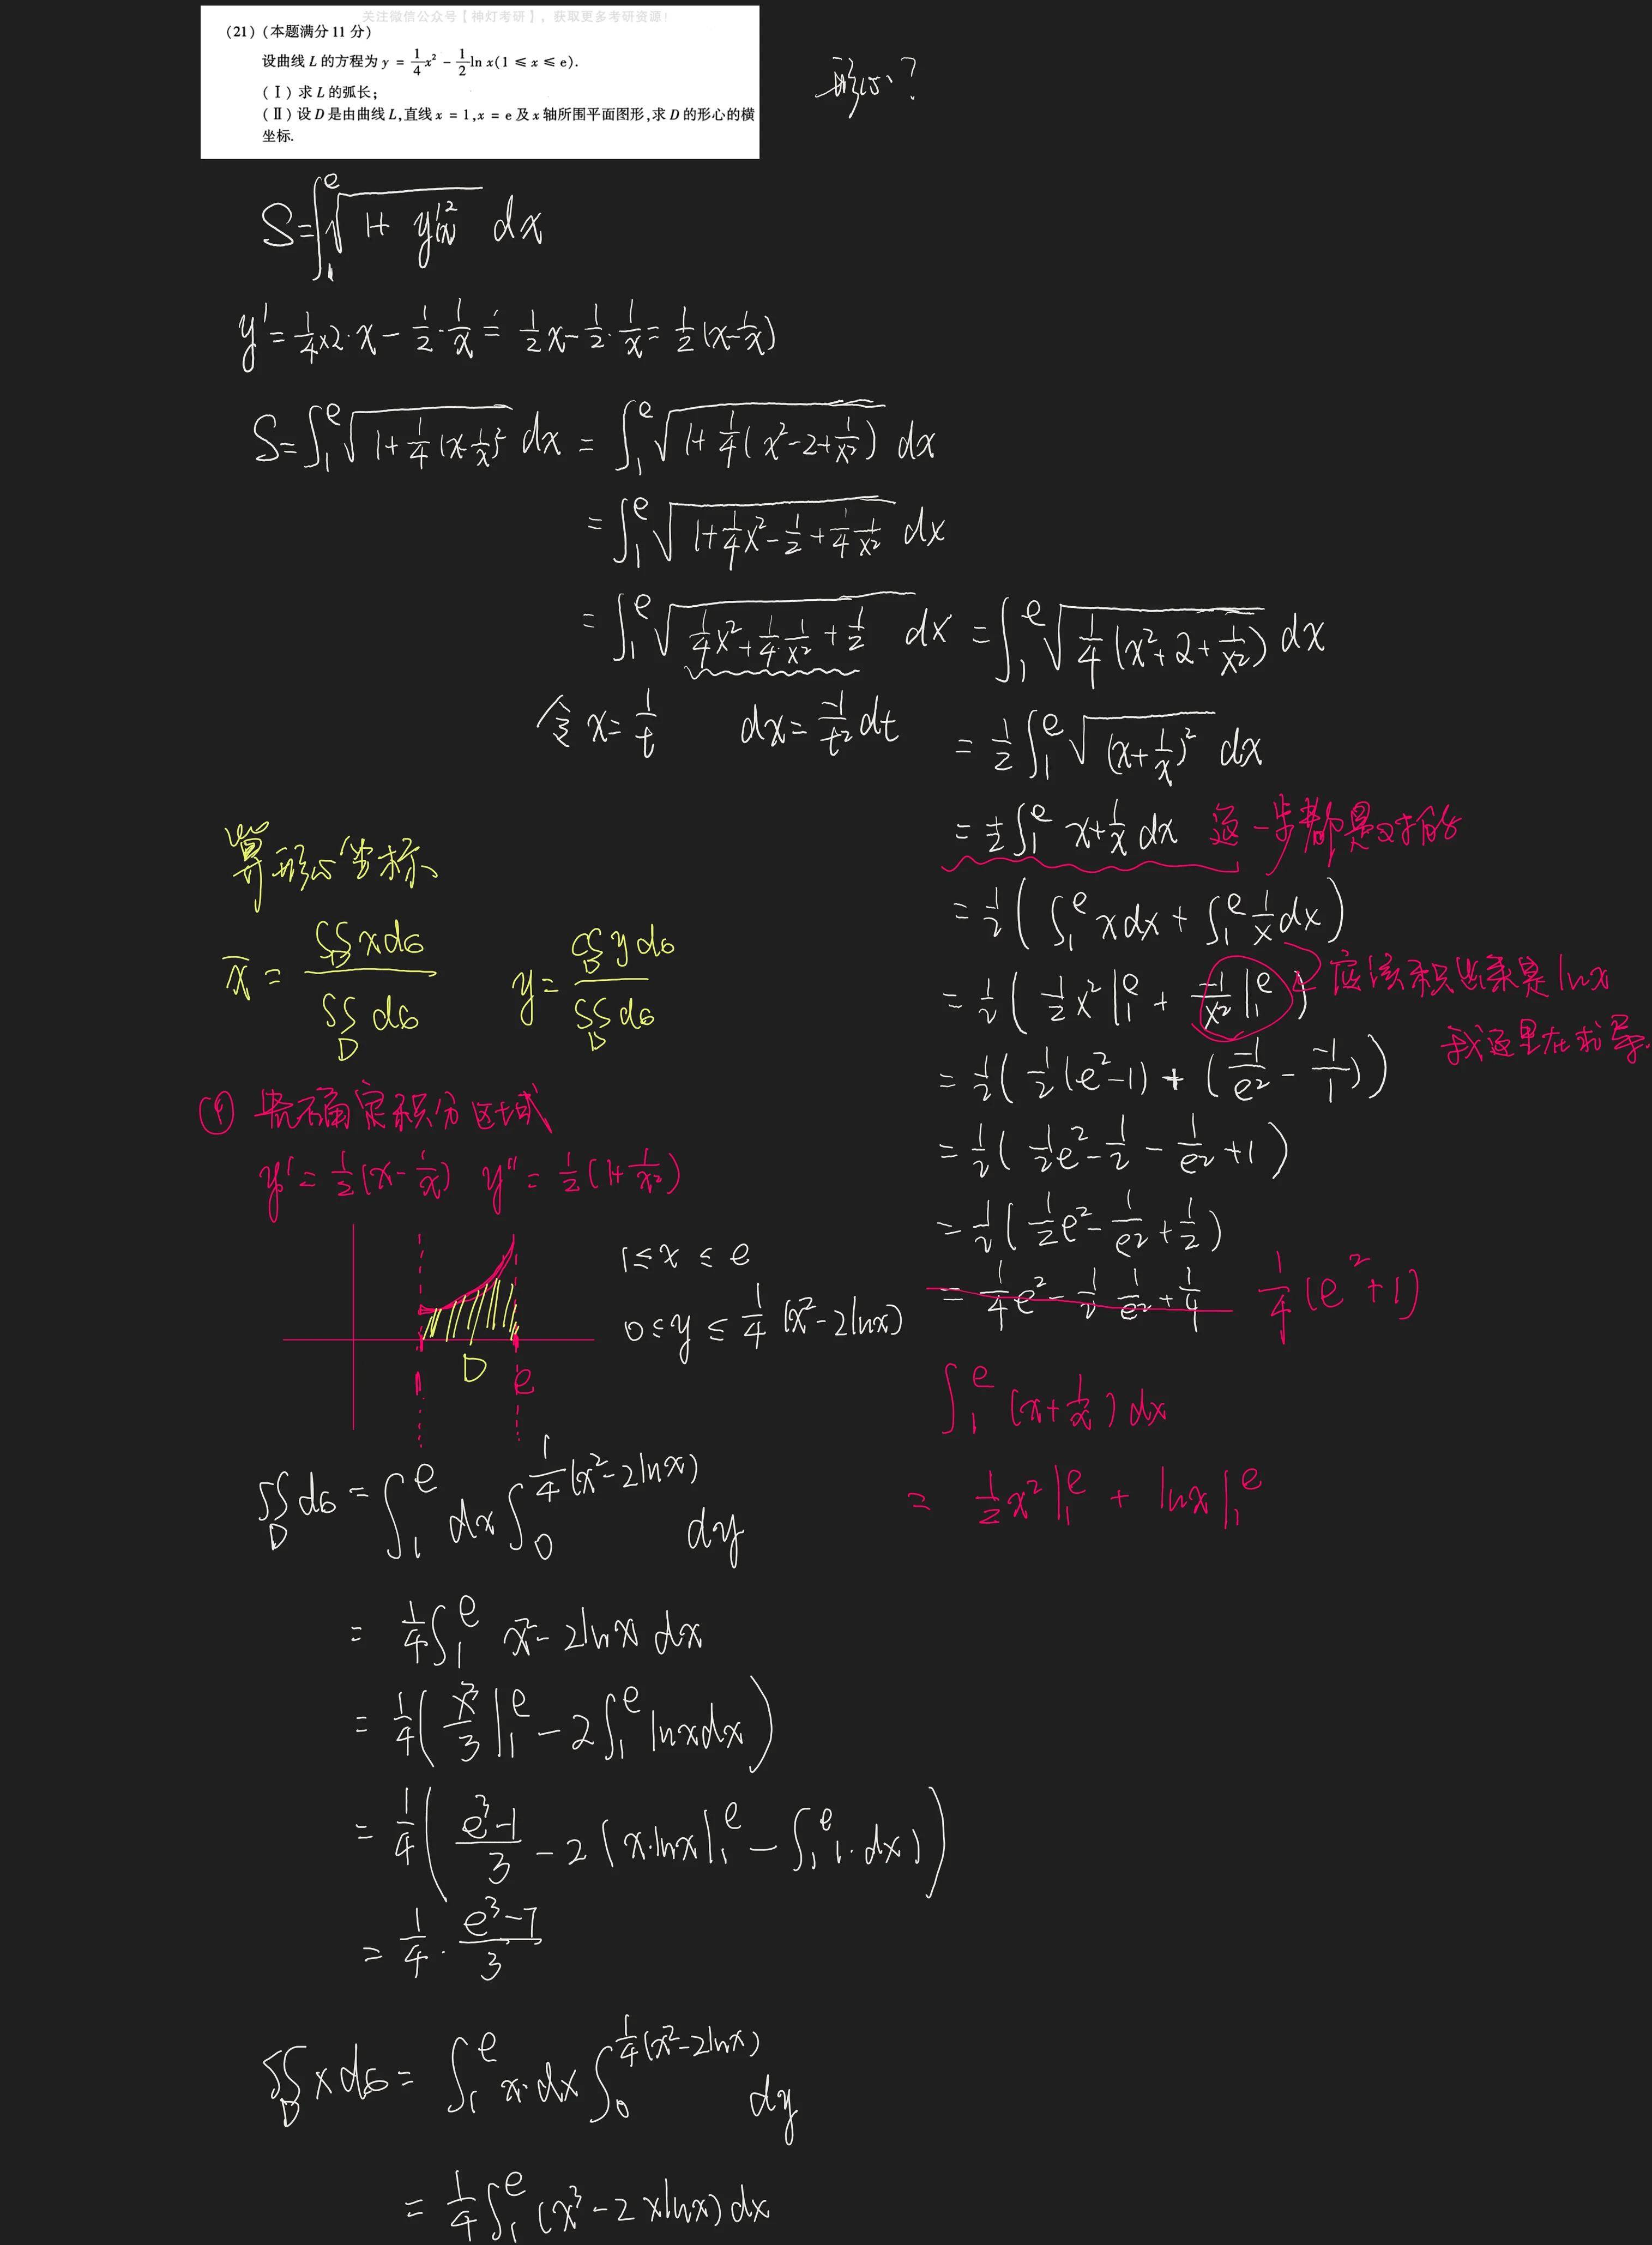 关注微信公众号【神灯考研】，获取更多考研资源！
(21) (本题满分 11 分)
设曲线 L 的方程为 y = 1/4 x² - 1/2 ln x(1 ≤ x ≤ e).
(Ⅰ) 求 L 的弧长;
(Ⅱ) 设 D 是由曲线 L,直线 x = 1,x = e 及 x 轴所围平面图形,求 D 的形心的横
坐标.
形心?
S=∫₁^e √(1+ y'(x)²) dx
y' = 1/4×2·x - 1/2·1/x = 1/2 x - 1/2·1/x = 1/2 (x-1/x)
S=∫₁^e √(1+1/4 (x-1/x)²) dx = ∫₁^e √(1+1/4(x²-2+1/x²)) dx
=∫₁^e √(1+1/4x²-1/2+1/4 1/x²) dx
=∫₁^e √(1/4x²+1/4·1/x²+1/2) dx =∫₁^e √(1/4(x²+2+1/x²)) dx
令 x=1/t dx=-1/t² dt
= 1/2 ∫₁^e √((x+1/x)²) dx
= 1/2 ∫₁^e x+1/x dx 这一步都是对的
= 1/2 ( ∫₁^e x dx + ∫₁^e 1/x dx )
= 1/2 ( 1/2 x² |₁^e + -1/x² |₁^e ) 应该积出来是 lnx
我这里在求导.
= 1/2 ( 1/2(e²-1) + (-1/e² - -1/1) )
= 1/2 ( 1/2e² - 1/2 - 1/e² + 1 )
= 1/2 ( 1/2e² - 1/e² + 1/2 )
= 1/4e² - 1/2 1/e² + 1/4 1/4(e²+1)
∫₁^e (x+1/x) dx
= 1/2x² |₁^e + lnx |₁^e
算形心坐标
x̄ = ∬_D xdσ / ∬_D dσ y = ∬_D y dσ / ∬_D dσ
① 先确定积分区域
y' = 1/2 (x-1/x) y'' = 1/2 (1+1/x²)
1≤x≤e
0≤y≤1/4 (x²-2lnx)
D
1 e
∬_D dσ = ∫₁^e dx ∫₀^{1/4(x²-2lnx)} dy
= 1/4 ∫₁^e x²-2lnx dx
= 1/4 ( x³/3 |₁^e - 2∫₁^e lnxdx )
= 1/4 ( (e³-1)/3 - 2 ( x·lnx |₁^e - ∫₁^e 1·dx ) )
= 1/4 · (e³-7)/3
∬_D xdσ = ∫₁^e x·dx ∫₀^{1/4(x²-2lnx)} dy
= 1/4 ∫₁^e (x³-2xlnx) dx